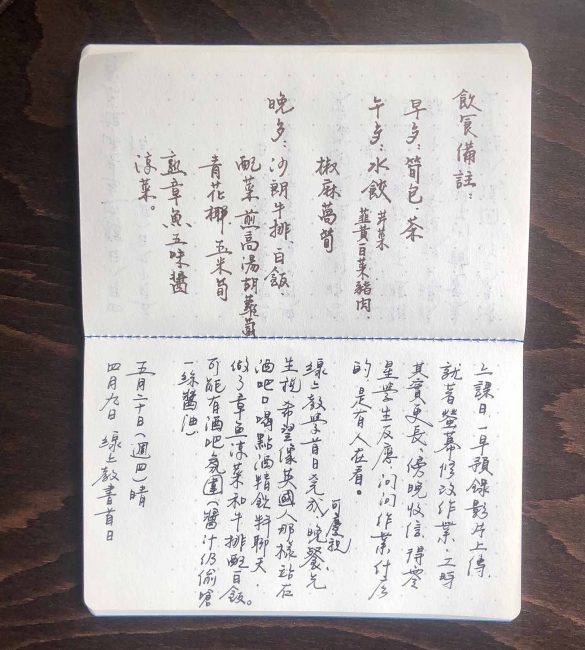 飲食備註：
早歺：筍包．茶
午歺：水餃 芹菜
韮黃白菜豬肉．
椒麻萵筍
晚歺：沙朗牛排、白飯、
配菜煎高湯胡蘿蔔
青花椰玉米筍
熟章魚五味醬
淳菜。
上課日，一早預錄影片上傳，
就著螢幕修改作業，工時
其實更長，傍晚收信得零
星學生反應問問作業什么
的，是有人在看。
線上教學首日完成，可慶祝晚餐，先
生說希望像英國人那樣站在
酒吧口喝點酒精飲料聊天，
做了章魚淳菜和牛排配白飯。
可能有酒吧氛圍（醬汁仍偷嗆
一絲醬油）
五月二十日（週四）晴
四月九日 線上教書首日